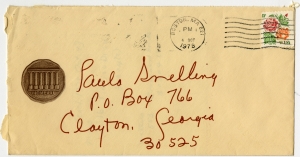 BOSTON, MA
PM
1978
Paulo Snelling
P.O. Box 766
Clayton, Georgia
30525